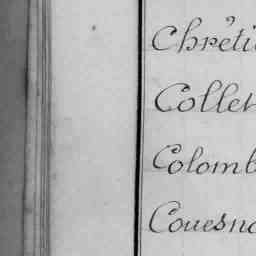 Chréti
Collet
Colomb
Couesno